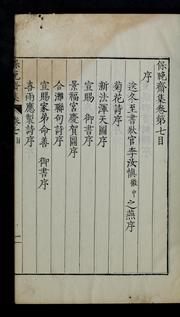 保晩齋集卷第七目
序
送冬至書狀官李汝愼徽中之燕序
菊花詩序
新法渾天圖序
宣賜 御書序
景福宮慶賀圖序
合瀨聯句詩序
宣賜家弟命善 御書序
喜雨應製詩序
保晩齋集 卷七目 一